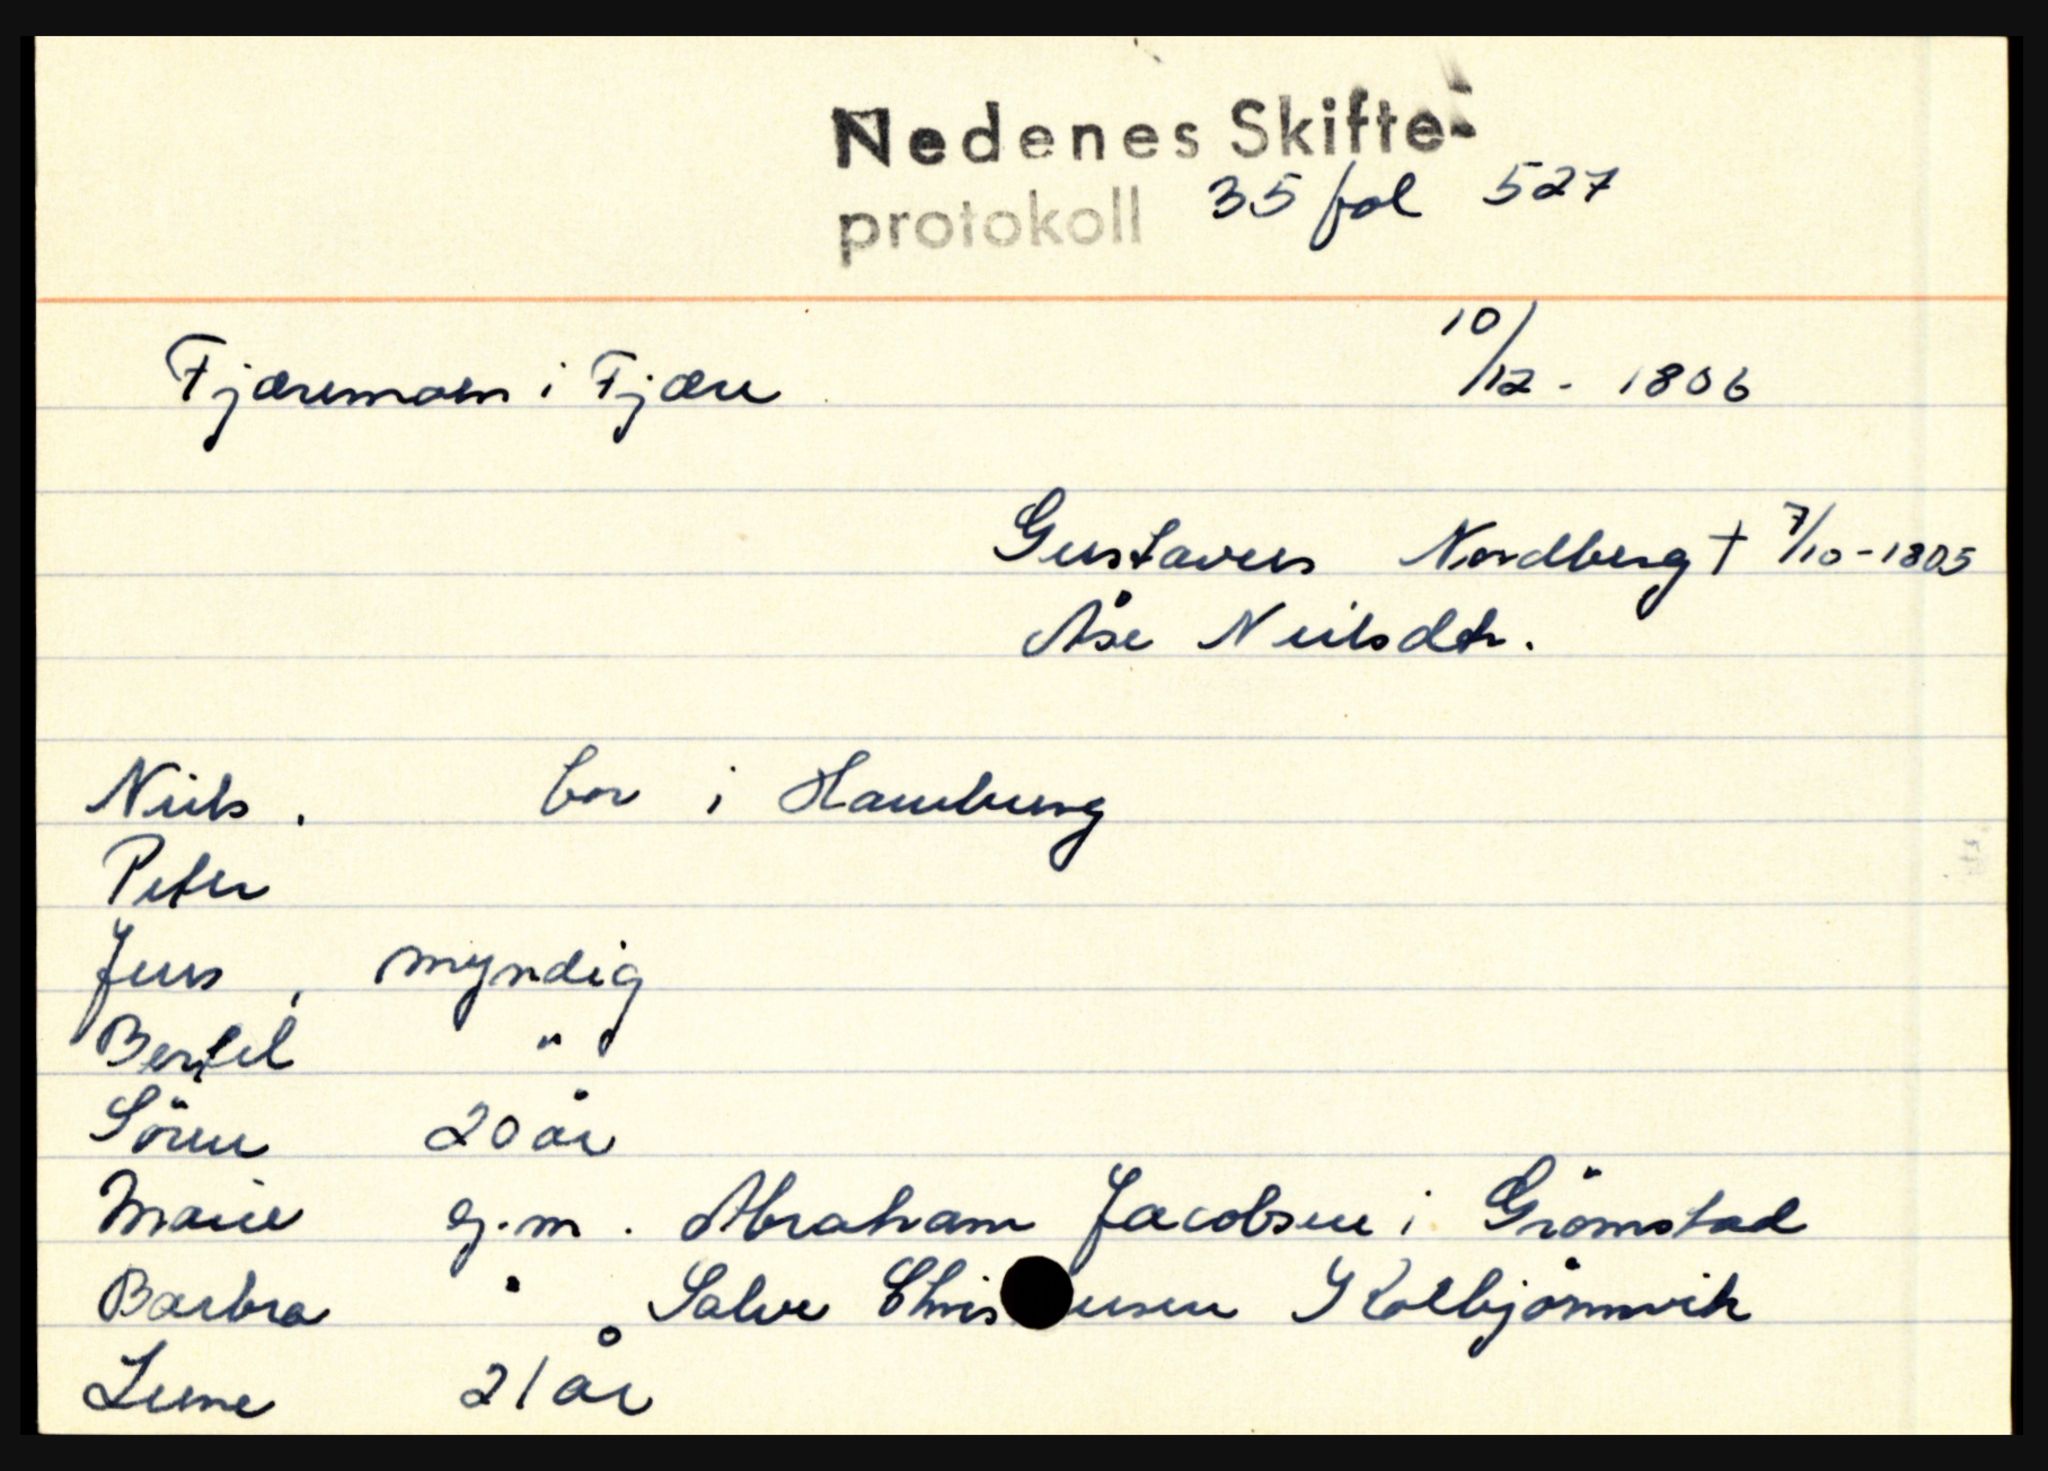 Nedenes Skifte-
protokoll 35 fol 527
Fjæremoen i Fjære 10/12 - 1806
Gustavus Nordberg † 7/10-1805
Åse Neilsdtr.
Niils. bor i Hamburg
Peter
Jens, myndig
Bertel "
Sören 20 år
Marie g.m. Abraham Jacobsen i Grömstad
Barbra " Salve Chris ensen Kolbjörnsvik
Lene 21 år